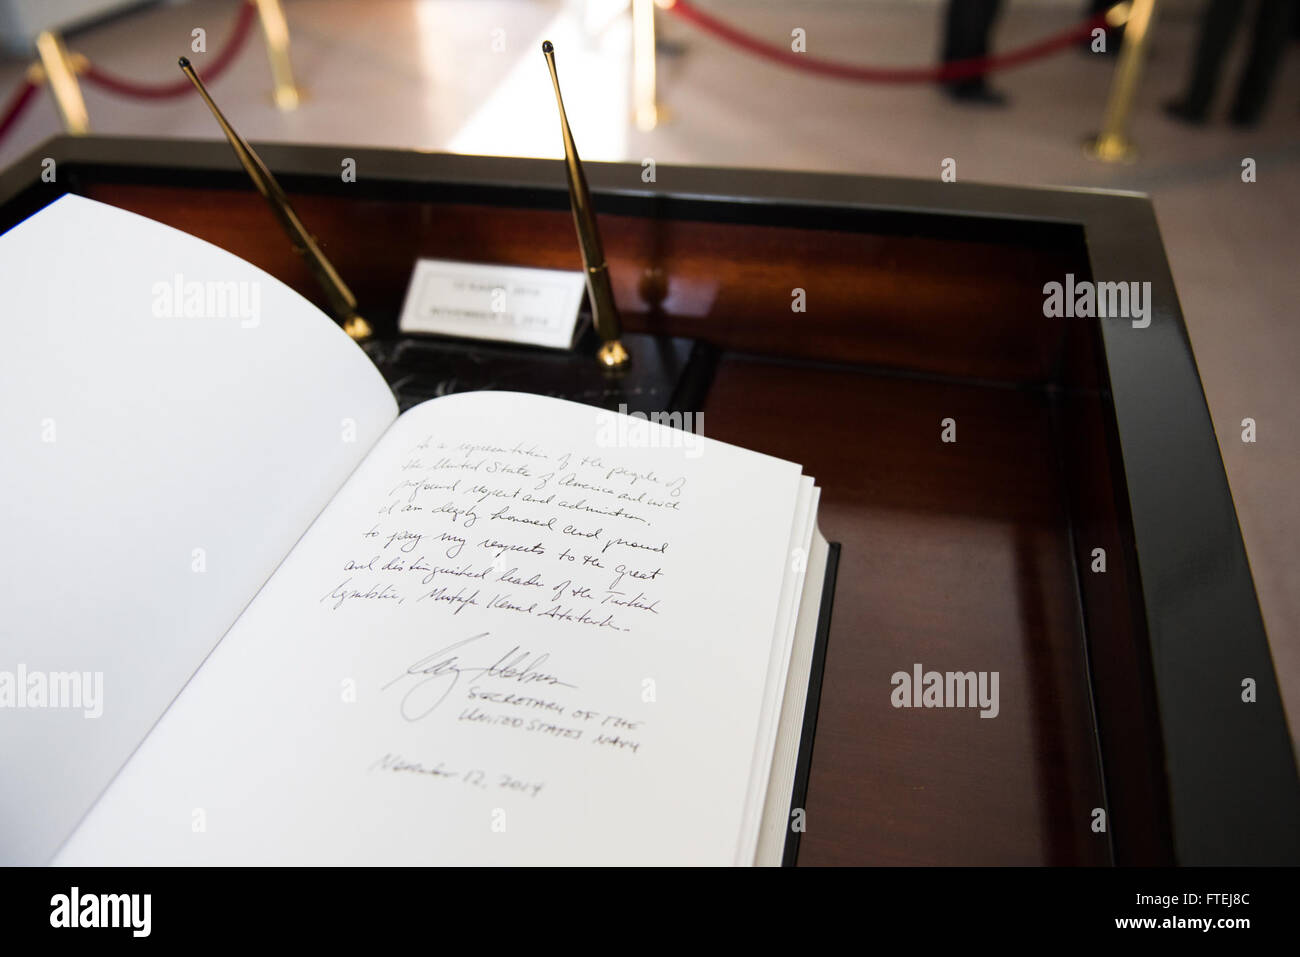 12 KASIM 2014
NOVEMBER 12, 2014
As a representative of the people of
the United States of America and with
profound respect and admiration,
I am deeply honored and proud
to pay my respects to the great
and distinguished leader of the Turkish
Republic, Mustafa Kemal Ataturk.
Ray Mabus
SECRETARY OF THE
UNITED STATES NAVY
November 12, 2014
alamy
alamy
Image ID: FTEJ8C
www.alamy.com